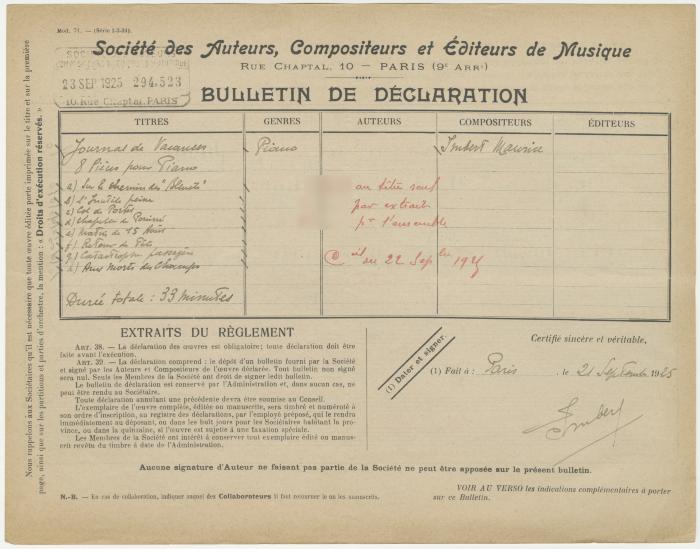 Mod. 71. — (Série 1-3-24).
Société des Auteurs, Compositeurs et Éditeurs de Musique
RUE CHAPTAL, 10 — PARIS (9e ARRt)
23 SEP 1925 294.523
10, Rue Chaptal, PARIS
BULLETIN DE DÉCLARATION
TITRES GENRES AUTEURS COMPOSITEURS ÉDITEURS
Journal de Vacances Piano Imbert Maurice
8 Pièces pour Piano
a) Sur le chemin des "Bleuets" au titre seul
b) L'Inutile peine par extraits
c) Col de Portes pr l'ensemble
d) Chapelle de
e) Matin de 15 Août
f) Retour de Fête
g) Catastrophe passagère au 22 Sep 1925
h) Aux morts des Champs
Durée totale : 33 minutes
EXTRAITS DU RÈGLEMENT
ART. 38. — La déclaration des œuvres est obligatoire; toute déclaration doit être
faite avant l'exécution.
ART. 39. — La déclaration comprend : le dépôt d'un bulletin fourni par la Société
et signé par les Auteurs et Compositeurs de l'œuvre déclarée. Tout bulletin non signé
sera nul. Seuls les Membres de la Société ont droit de signer ledit bulletin.
Le bulletin de déclaration est conservé par l'Administration et, dans aucun cas, ne
peut être rendu au Sociétaire.
Toute déclaration annulant une précédente devra être soumise au Conseil.
L'exemplaire de l'œuvre complète, éditée ou manuscrite, sera timbré et numéroté à
son ordre d'inscription, au registre des déclarations, par l'employé préposé, qui le rendra
immédiatement au déposant, ou dans les huit jours pour les Sociétaires habitant la pro-
vince, ou dans la quinzaine, si l'œuvre est sujette à une taxation spéciale.
Les Membres de la Société ont intérêt à conserver tout exemplaire édité ou manus-
crit revêtu du timbre à date de l'Administration.
Certifié sincère et véritable,
(1) Dater et signer.
(1) Fait à : Paris , le 21 Septembre 1925
Imbert
Aucune signature d'Auteur ne faisant pas partie de la Société ne peut être apposée sur le présent bulletin.
N.-B. — En cas de collaboration, indiquer auquel des Collaborateurs il faut retourner le ou les manuscrits.
VOIR AU VERSO les indications complémentaires à porter
sur ce Bulletin.
Nous rappelons aux Sociétaires qu'il est nécessaire que toute œuvre éditée porte imprimée sur le titre et sur la première
page, ainsi que sur les partitions et parties d'orchestre, la mention : « Droits d'exécution réservés. »